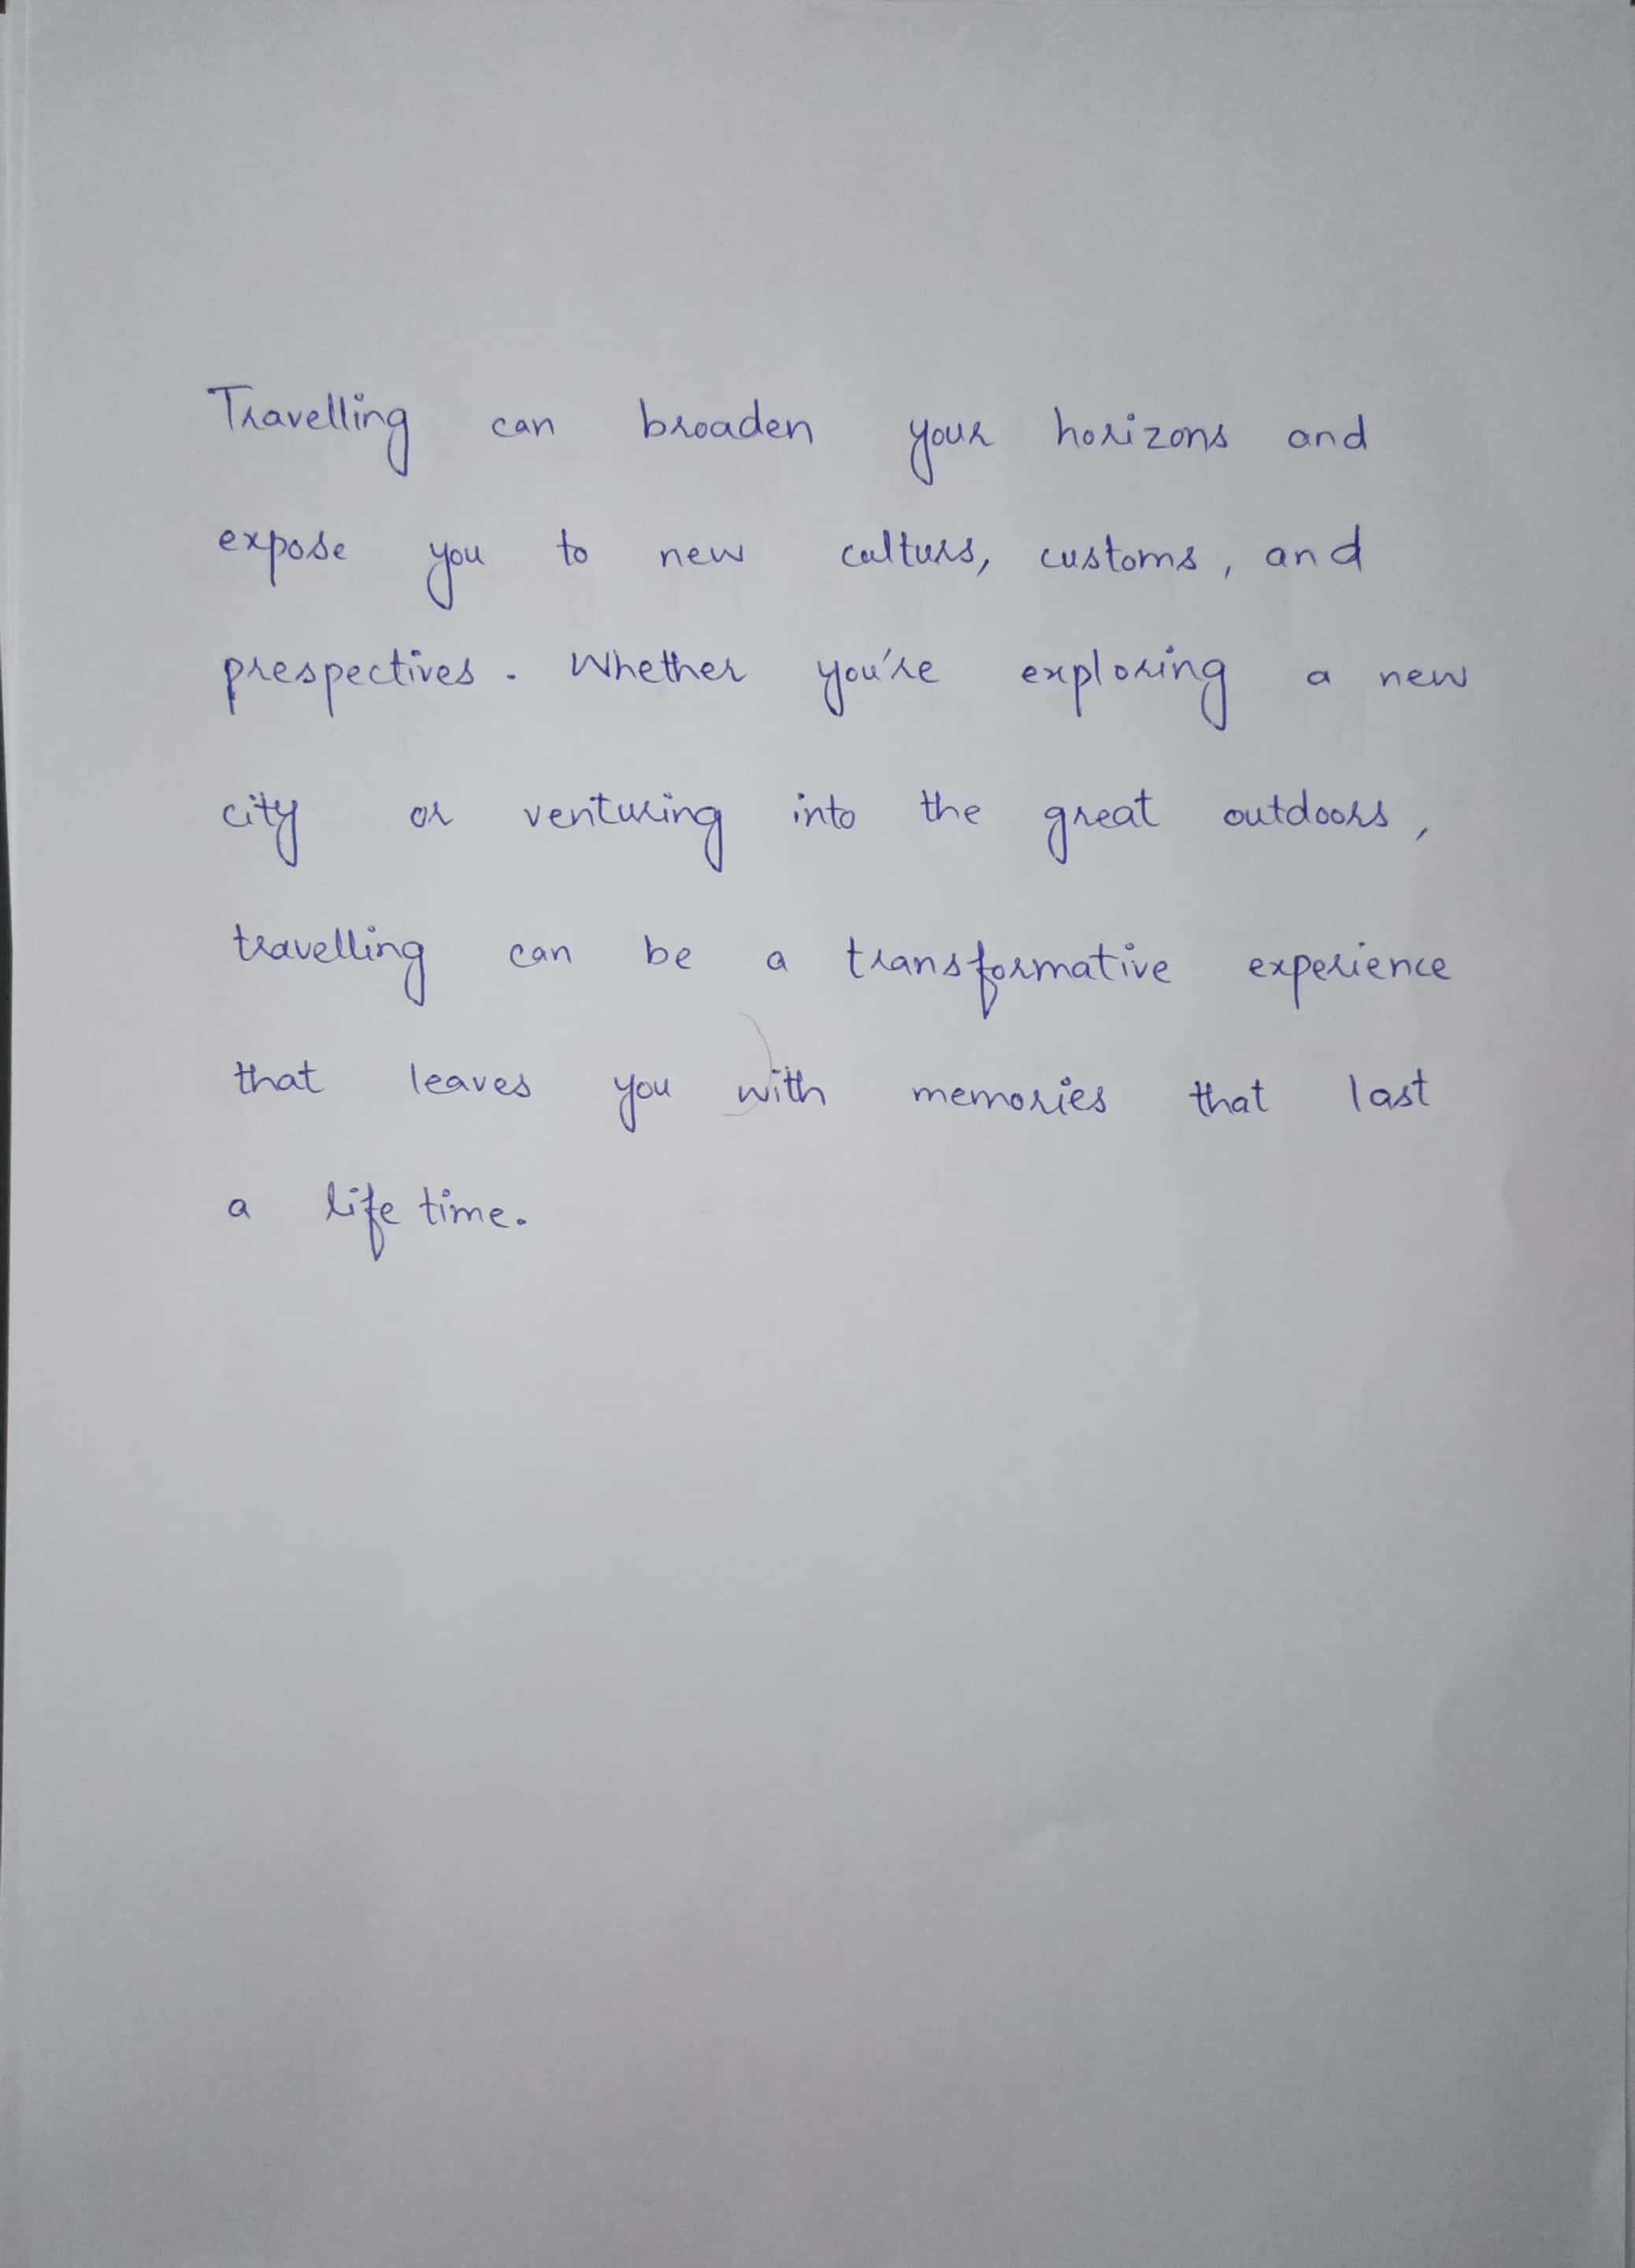 Travelling can broaden your horizons and
expose you to new culturs, customs, and
prespectives. Whether you're exploring a new
city or venturing into the great outdoors,
travelling can be a transformative experience
that leaves you with memories that last
a life time.